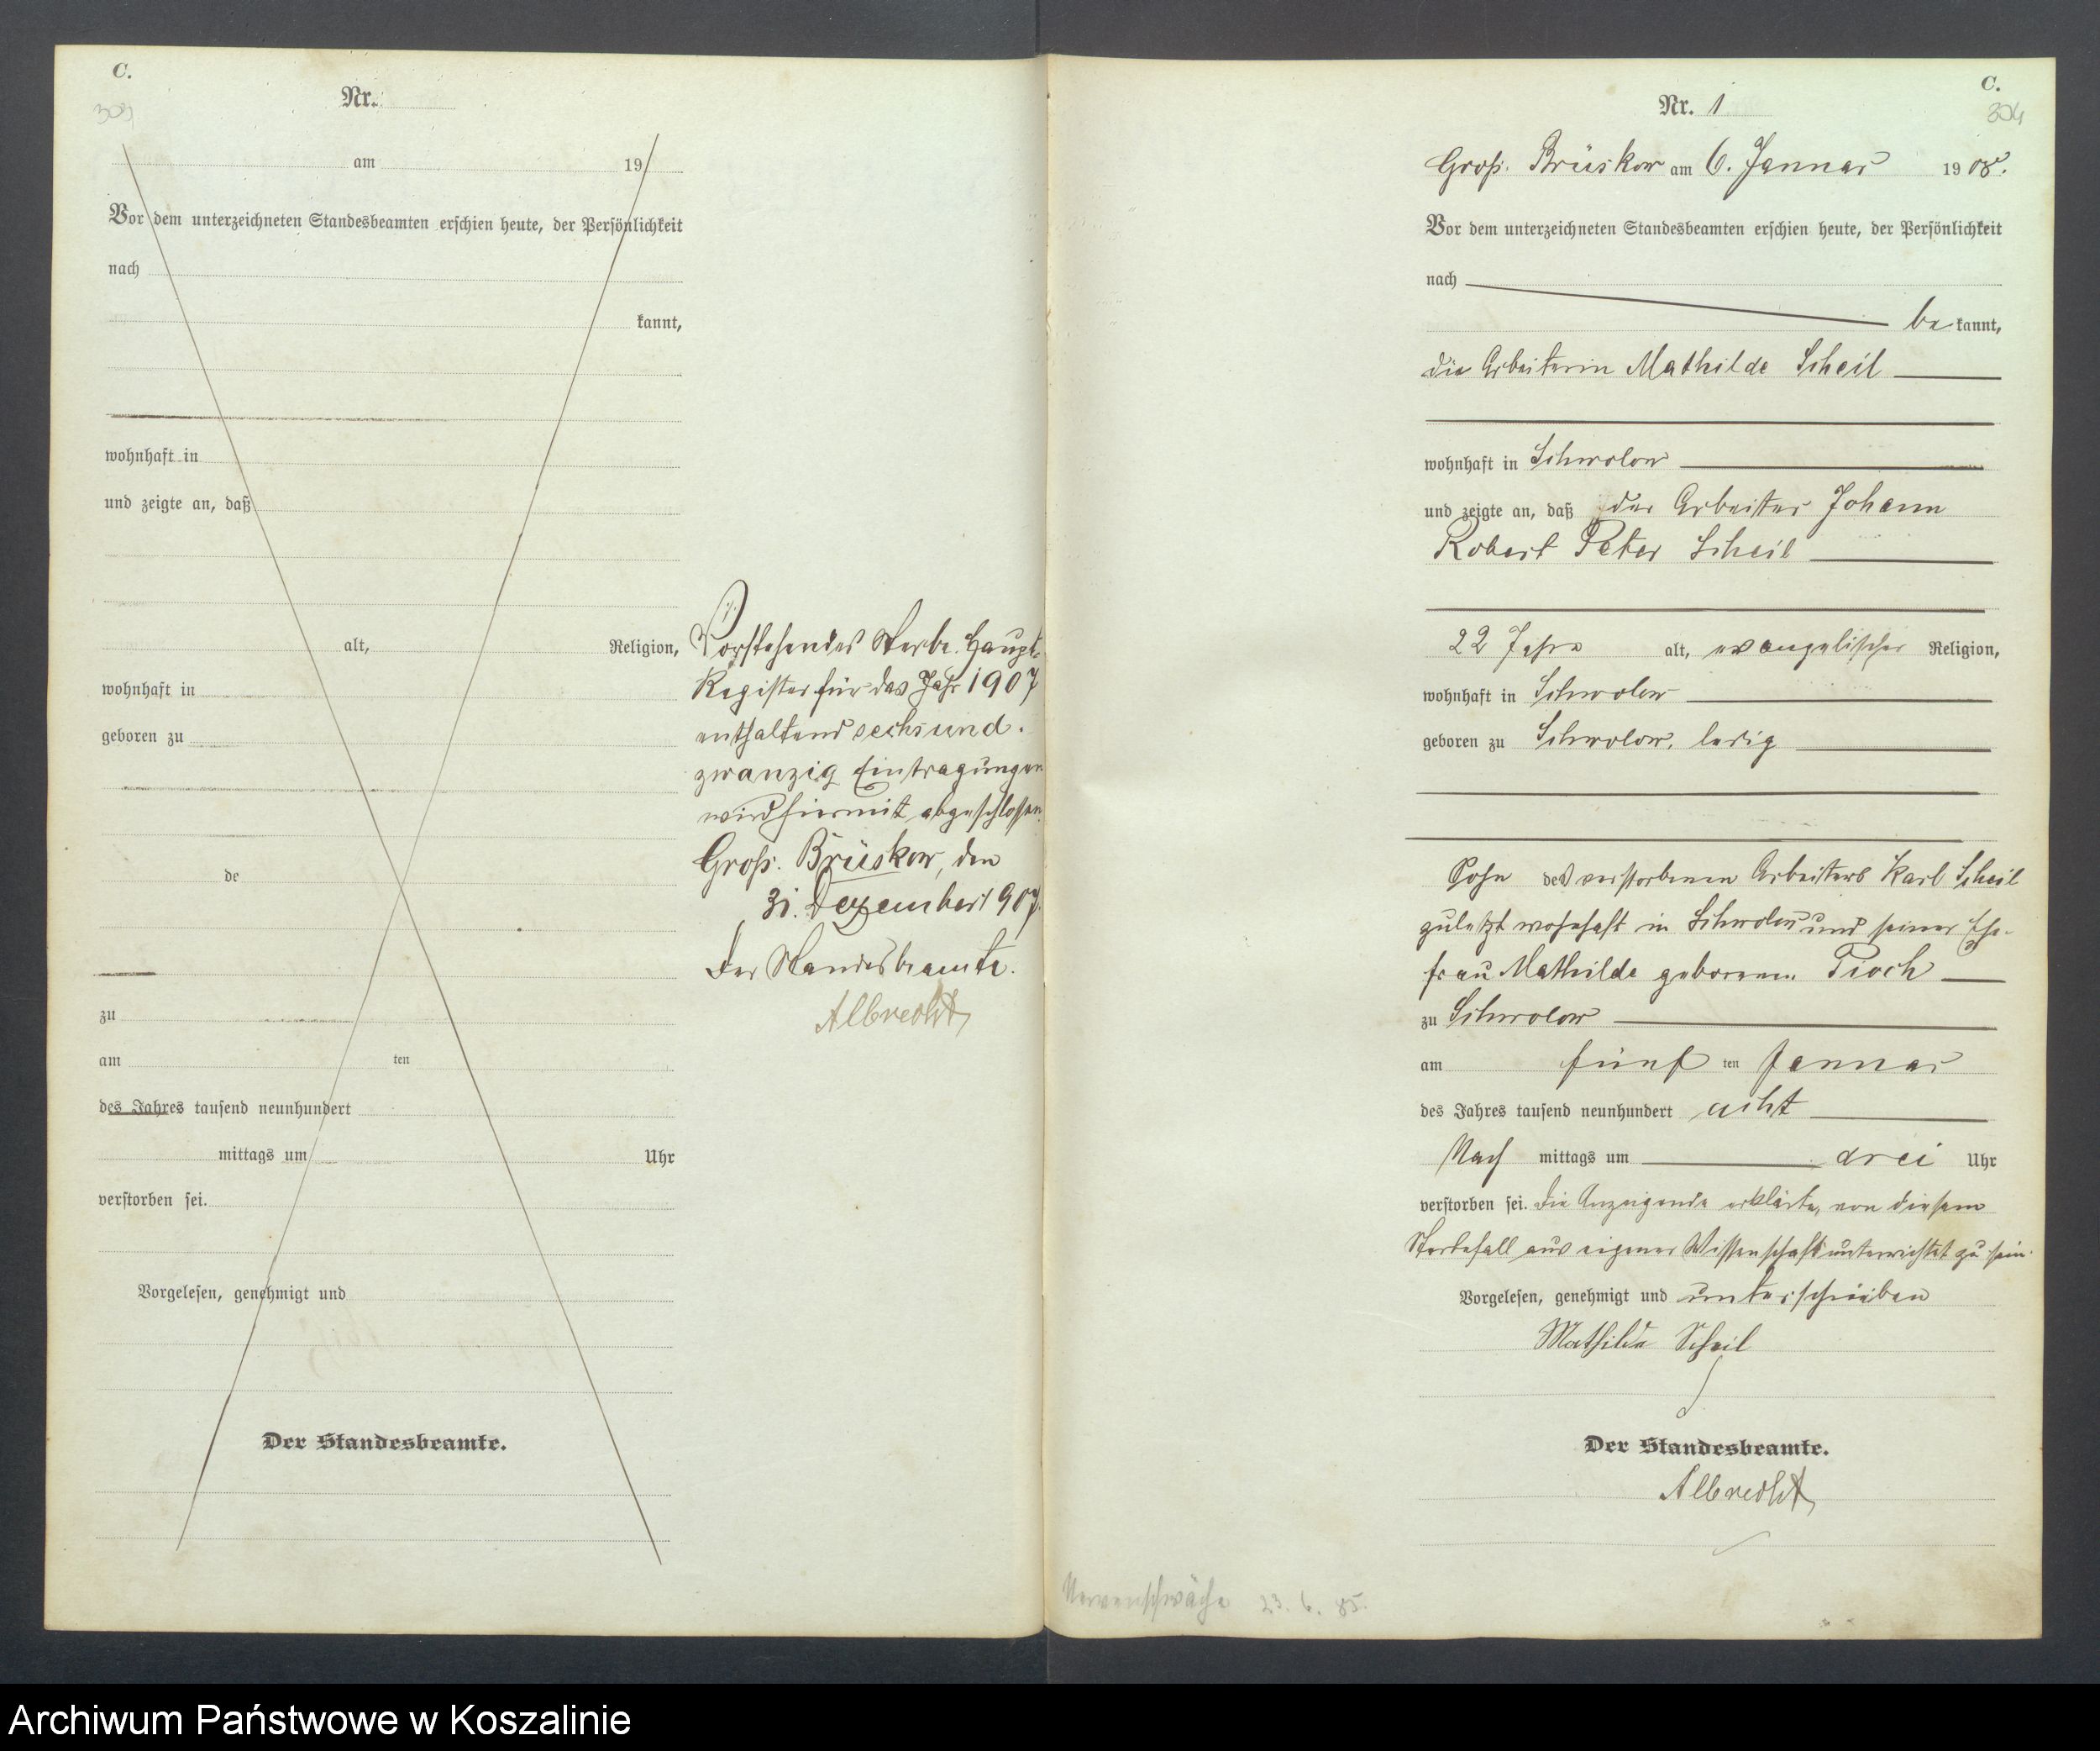 C.
Nr.
am 19
Vor dem unterzeichneten Standesbeamten erschien heute, der Persönlichkeit
nach
kannt,
wohnhaft in
und zeigte an, daß
alt, Religion,
wohnhaft in
geboren zu
de
zu
am ten
des Jahres tausend neunhundert
mittags um Uhr
verstorben sei.
Vorgelesen, genehmigt und
Der Standesbeamte.
Vorstehendes Sterbe-Haupt-
Register für das Jahr 1907
enthaltend sechsund-
zwanzig Eintragungen
wird hiermit abgeschlossen.
Groß. Brüskow, den
31. Dezember 1907.
Der Standesbeamte.
Albrecht
C.
304
Nr. 1
Groß. Brüskow am 6. Januar 1908.
Vor dem unterzeichneten Standesbeamten erschien heute, der Persönlichkeit
nach
bekannt,
die Arbeiterin Mathilde Scheil
wohnhaft in Schwolow
und zeigte an, daß der Arbeiter Johann
Robert Peter Scheil
22 Jahre alt, evangelischer Religion,
wohnhaft in Schwolow
geboren zu Schwolow, ledig
Sohn des verstorbenen Arbeiters Karl Scheil
zuletzt wohnhaft in Schwolow und seiner Ehe-
frau Mathilde geborenen Pioch
zu Schwolow
am fünf ten Januar
des Jahres tausend neunhundert acht
Nach mittags um drei Uhr
verstorben sei. Die Anzeigende erklärte, von diesem
Sterbefall aus eigener Wissenschaft unterrichtet zu sein.
Vorgelesen, genehmigt und unterschrieben
Mathilde Scheil
Der Standesbeamte.
Albrecht
Nervenschwäche 23. 6. 85.
Archiwum Państwowe w Koszalinie